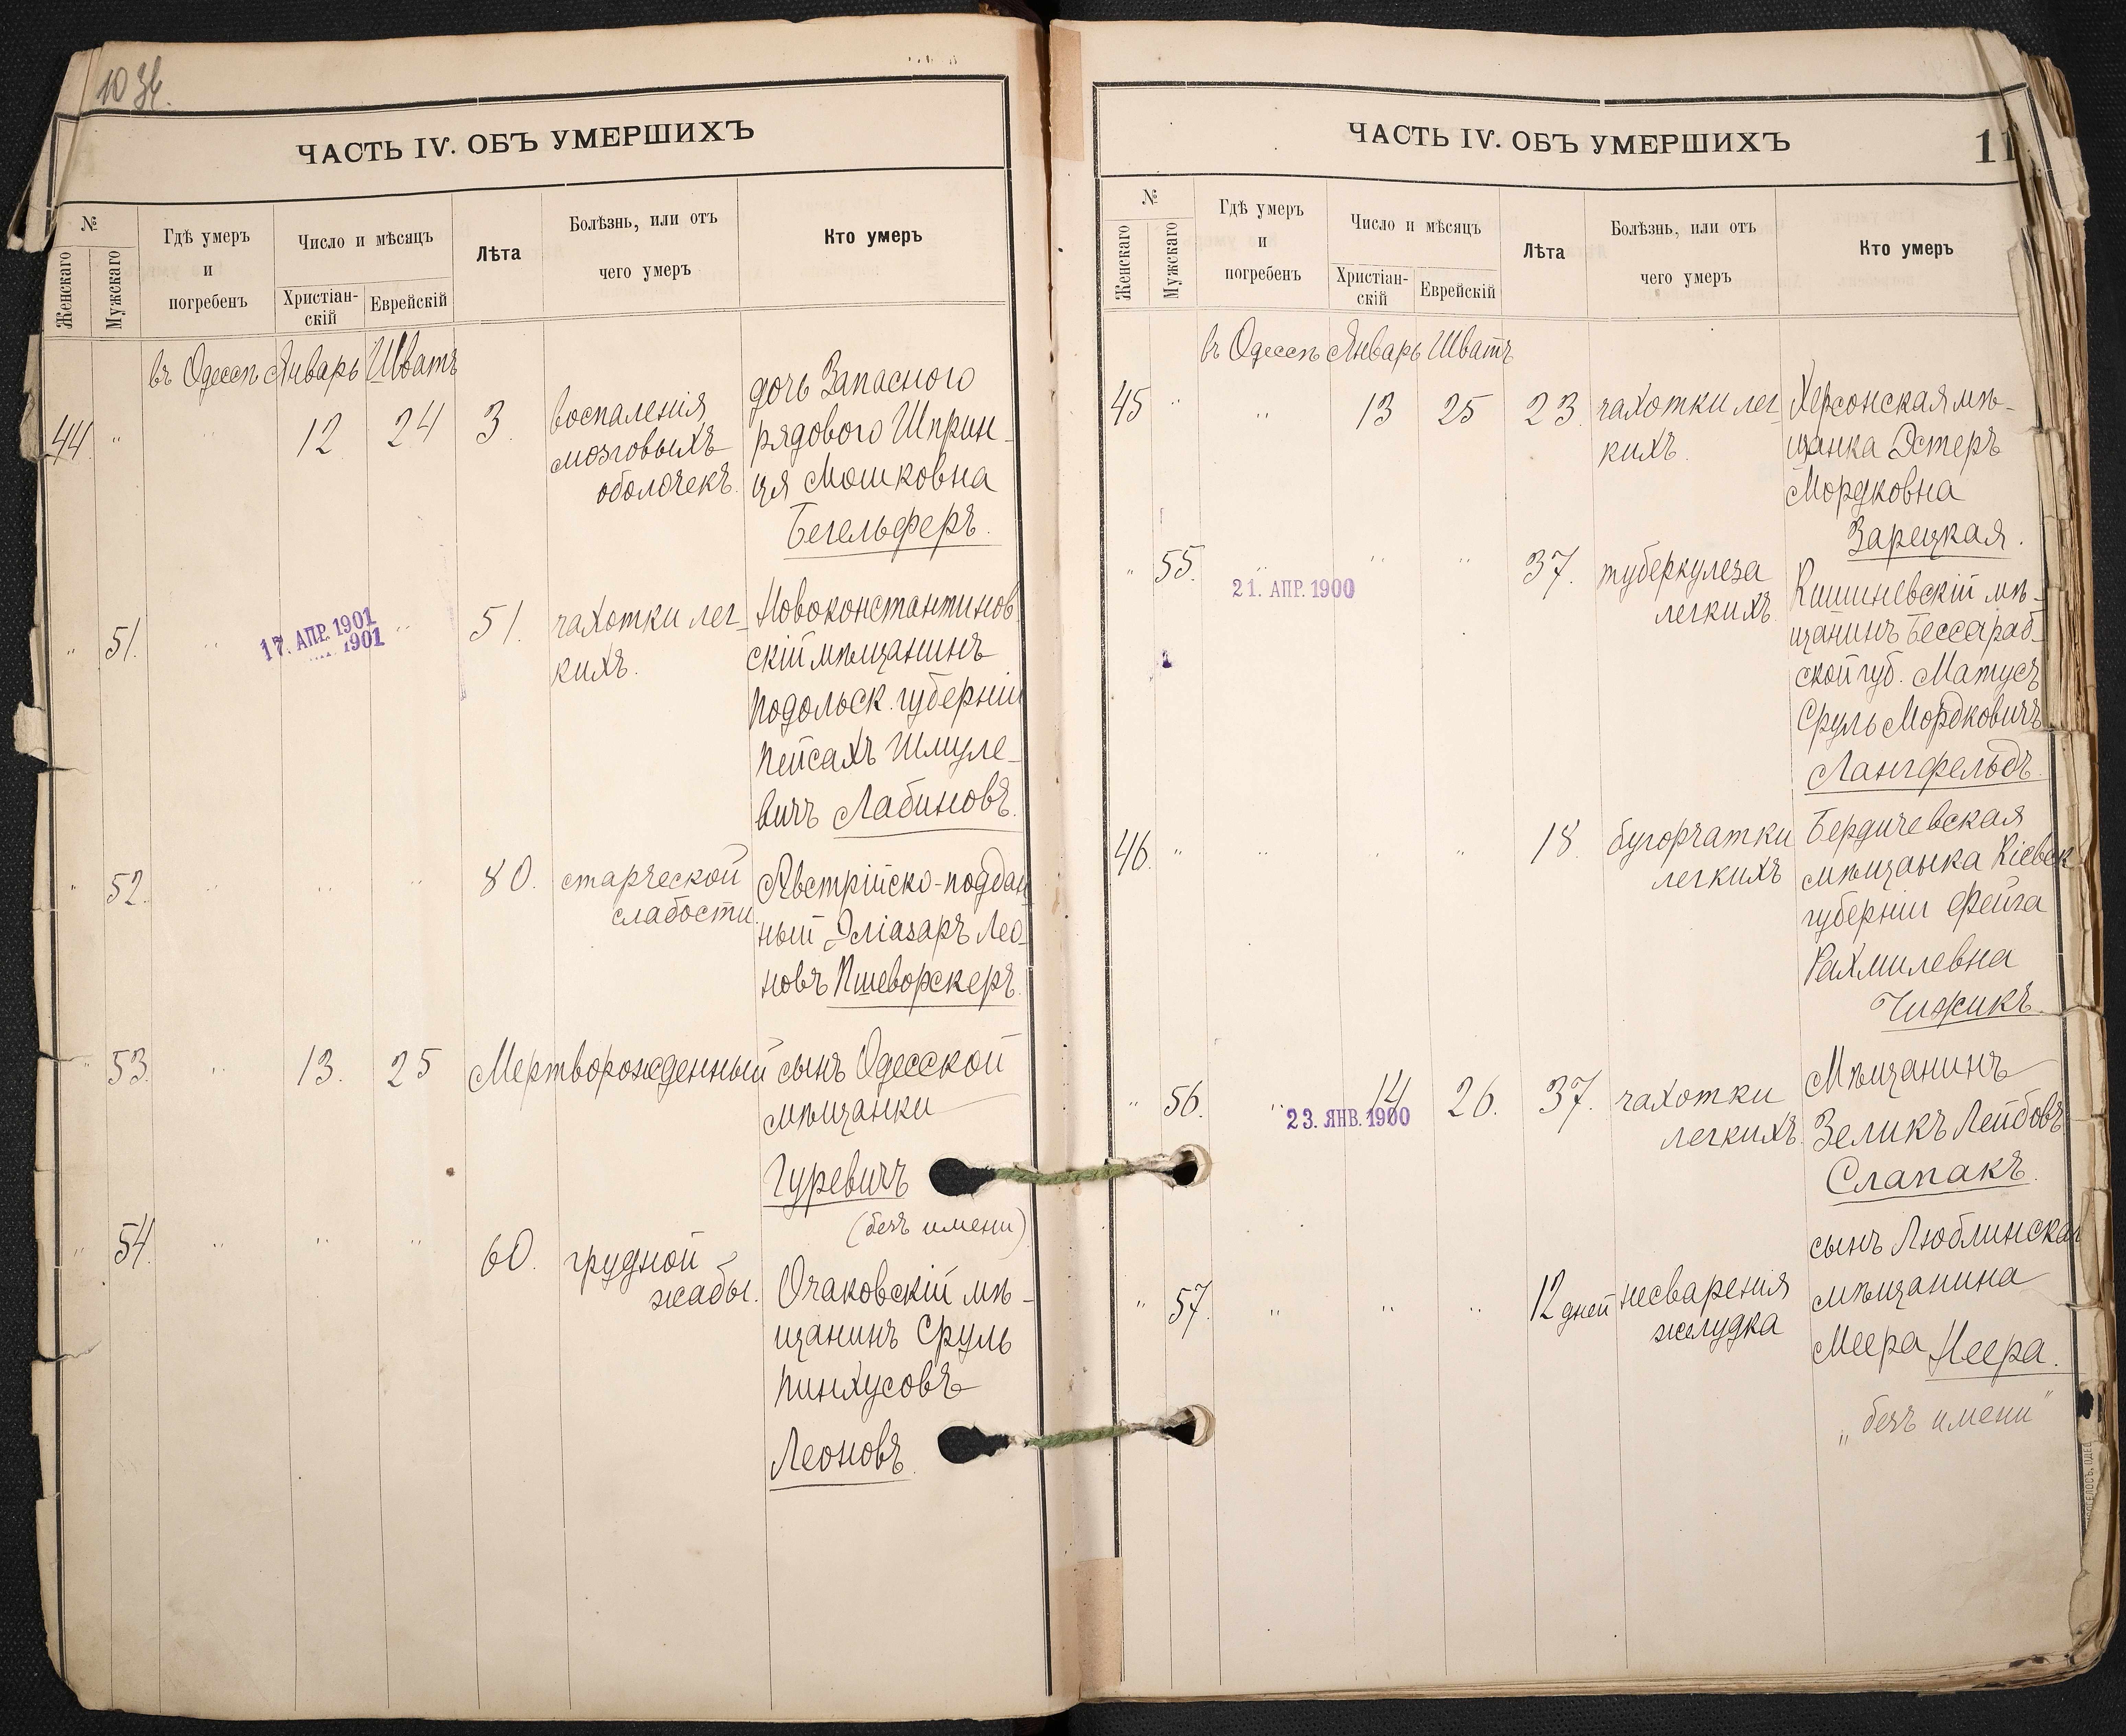 10 об.
ЧАСТЬ IV. ОБЪ УМЕРШИХЪ
№
Женскаго
Мужскаго
Гдѣ умеръ
и
погребенъ
Число и мѣсяцъ
Христіан-
скій
Еврейскій
Лѣта
Болѣзнь, или отъ
чего умеръ
Кто умеръ
въ Одессѣ Январь Шватъ
44 " " 12 24 3.
воспаленія
мозговыхъ
оболочекъ.
дочь Запасного
рядового Шприн-
ця Мошковна
Бегельферъ.
" 51. " 17. АПР. 1901 "
1901
51.
чахотки лег-
кихъ.
Новоконстантинов
скій мѣщанинъ
Подольск. губерніи
Пейсахъ Шмуле-
вичъ Лабиновъ.
" 52. " " " 80.
старческой
слабости.
Австрійско-поддан
ный Эліазаръ Лео-
новъ Пшеворскеръ.
" 53. " 13. 25
Мертворожденный сынъ Одесской
мѣщанки
Гуревичъ
(безъ имени)
" 54. " " " 60.
грудной
жабы.
Очаковскій мѣ-
щанинъ Сруль
Пинхусовъ
Леоновъ.
ЧАСТЬ IV. ОБЪ УМЕРШИХЪ
11
№
Женскаго
Мужскаго
Гдѣ умеръ
и
погребенъ
Число и мѣсяцъ
Христіан-
скій
Еврейскій
Лѣта
Болѣзнь, или отъ
чего умеръ
Кто умеръ
въ Одессѣ Январь Шватъ
45 " " 13 25 23.
чахотки лег
кихъ.
Херсонская мѣ-
щанка Эстеръ
Мордковна
Зарецкая.
" 55. " " " 37.
21. АПР. 1900
туберкулеза
легкихъ.
Кишиневскій мѣ-
щанинъ Бессараб-
ской губ. Матусъ
Сруль Мордковичъ
Лангфельдъ.
46. " " " " 18.
бугорчатки
легкихъ
Бердичевская
мѣщанка Кіевск
губерніи Фейга
Рахмилевна
Чижикъ.
" 56. " 14 26. 37.
23. ЯНВ. 1900
чахотки
легкихъ.
Мѣщанинъ
Зеликъ Лейбовъ
Слапакъ.
" 57. " " " 12 дней
несваренія
желудка
сынъ Люблинскаг
мѣщанина
Меера Меера.
„безъ имени"